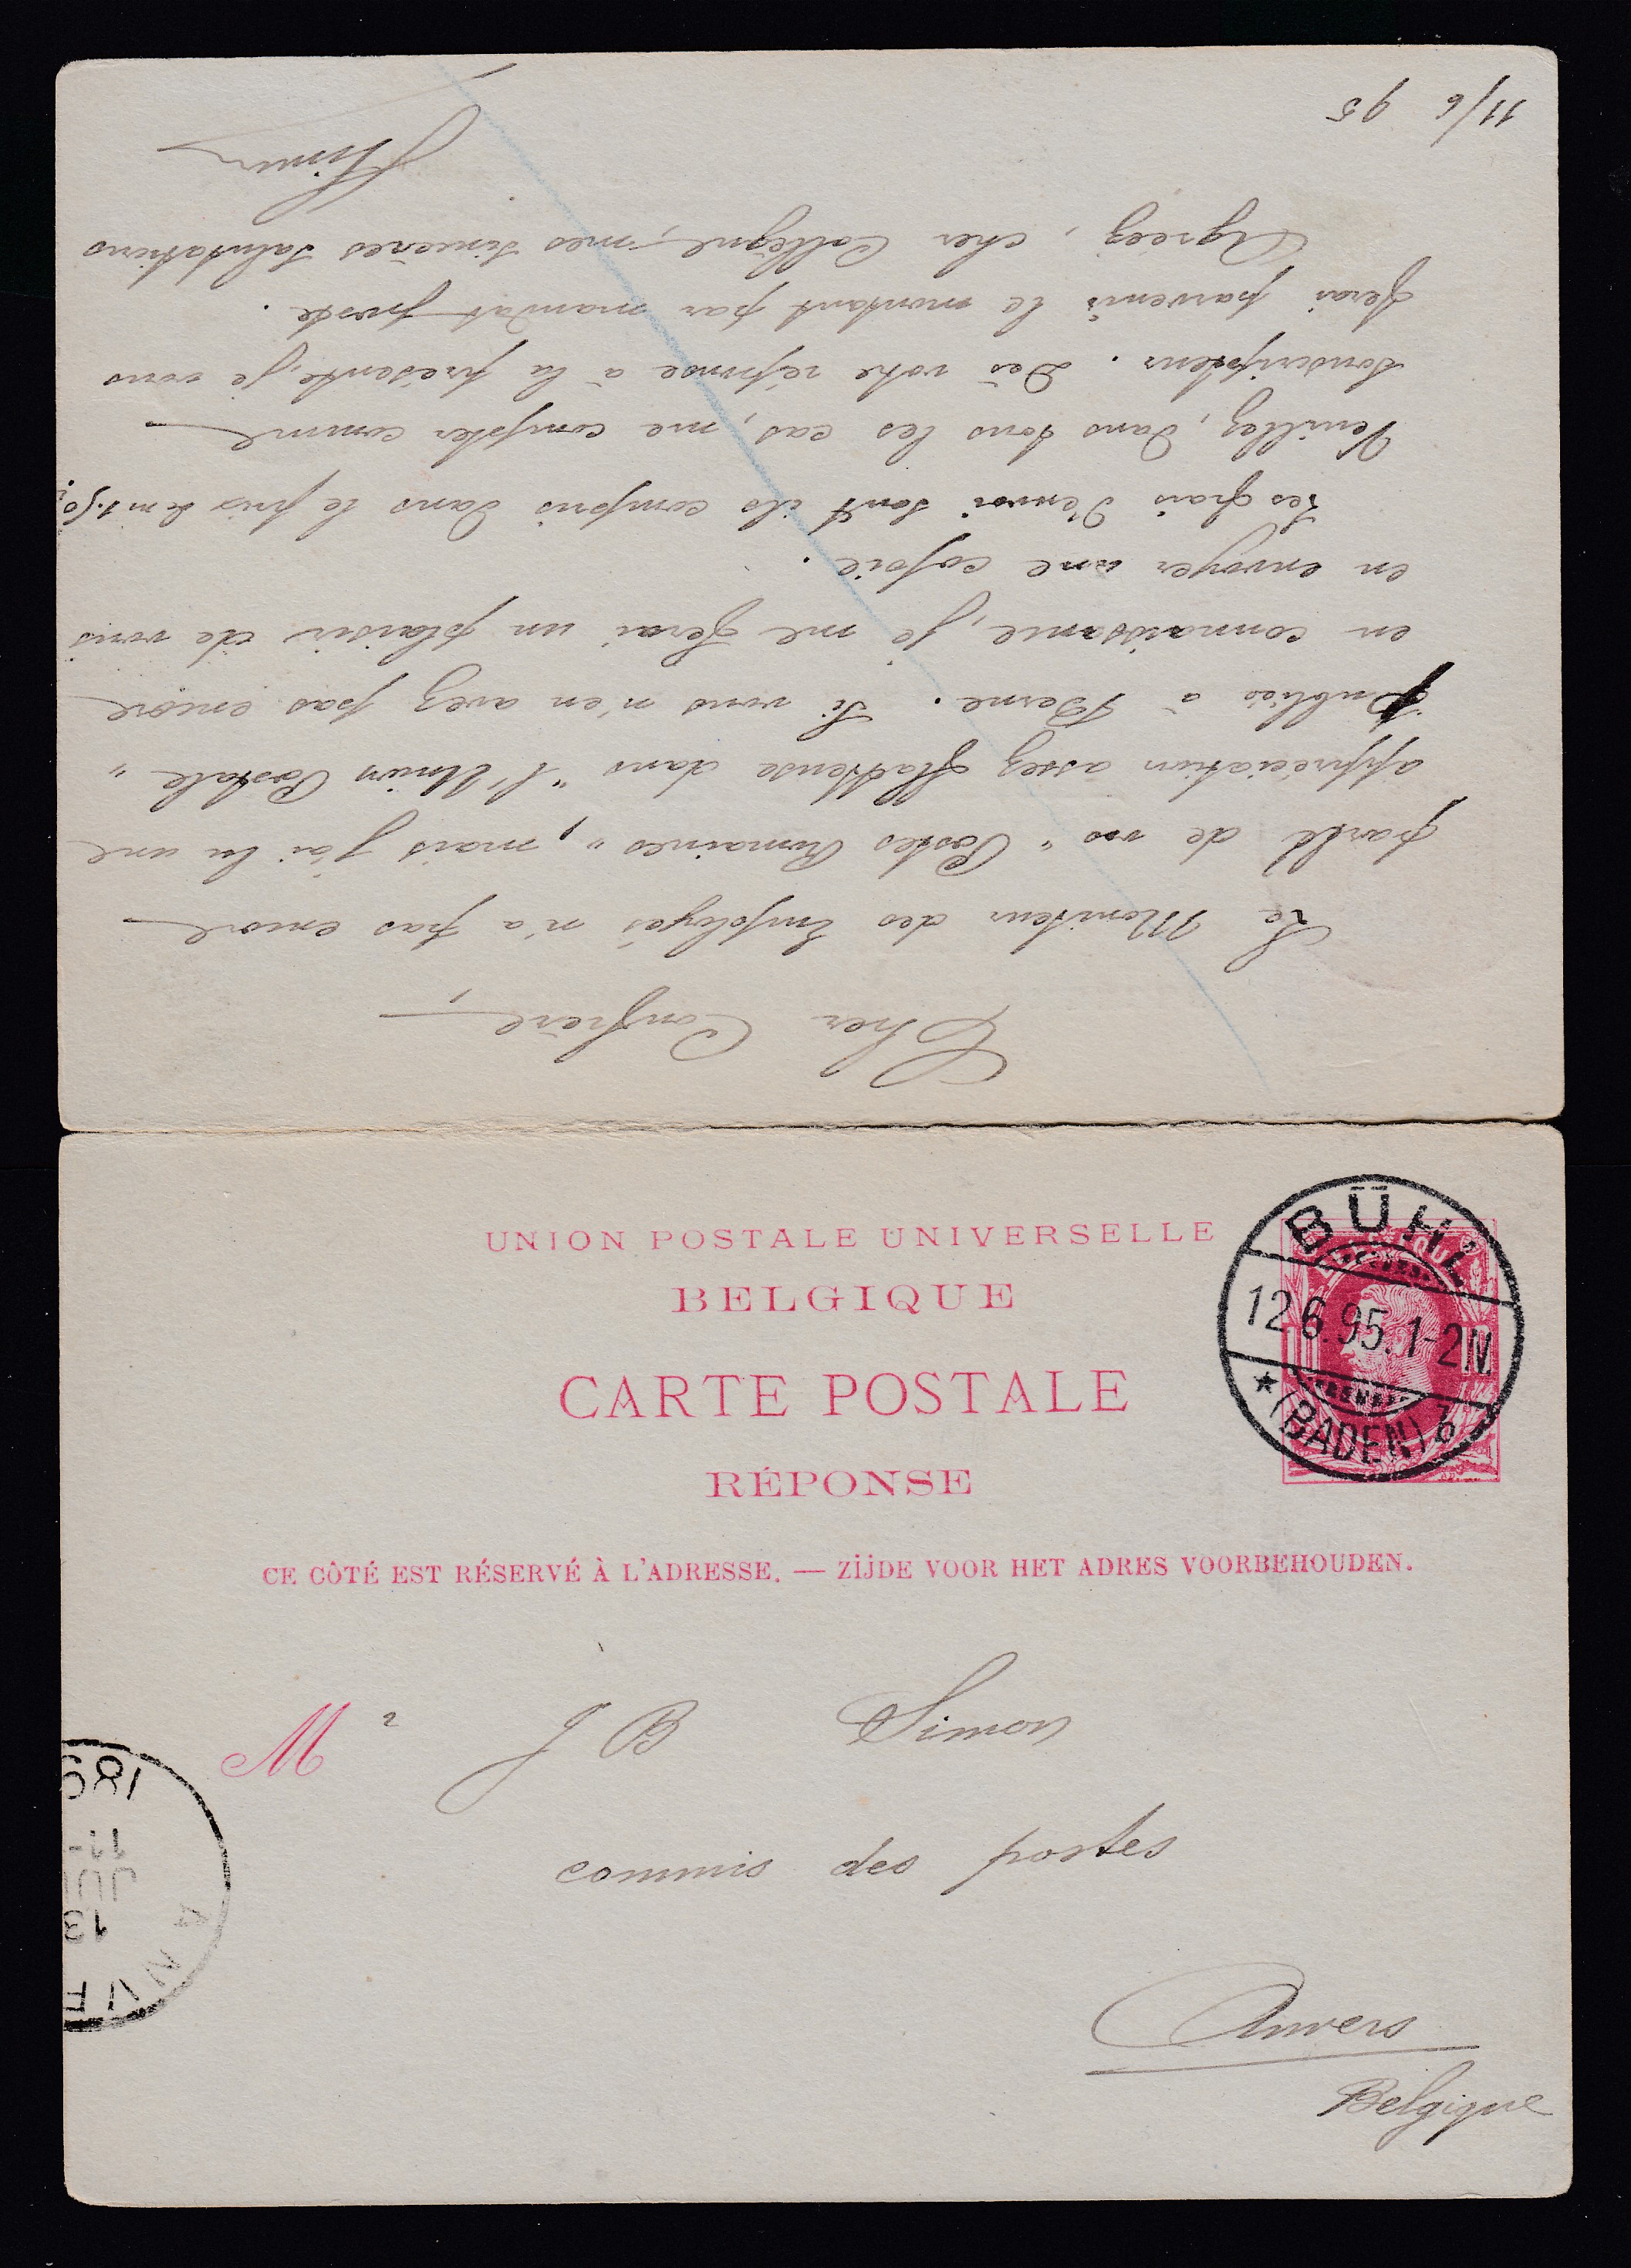 11/6 95
Cher Confrère,
Le Moniteur des Employés n'a pas encore
parlé de vos "Postes Romaines", mais j'ai lu une
appréciation assez flatteuse dans "l'Union Postale"
publiée à Berne. Si vous n'en avez pas encore
en connaissance, je me ferai un plaisir de vous
en envoyer une copie.
Les frais d'envoi sont ils compris dans le prix de m 1.50?
Veuillez, dans tous les cas, me compter comme
souscripteur. Dès votre réponse à la présente, je vous
ferai parvenir le montant par mandat poste.
Agréez, cher Collègue, mes sincères salutations
JBSimon
UNION POSTALE UNIVERSELLE
BELGIQUE
CARTE POSTALE
RÉPONSE
CE CÔTÉ EST RÉSERVÉ À L'ADRESSE. — ZIJDE VOOR HET ADRES VOORBEHOUDEN.
BÜHL
12.6.95.1-2N.
* (BADEN) b
Mr J B Simon
commis des postes
Anvers
Belgique
ANVE
13
JUI
11-
189